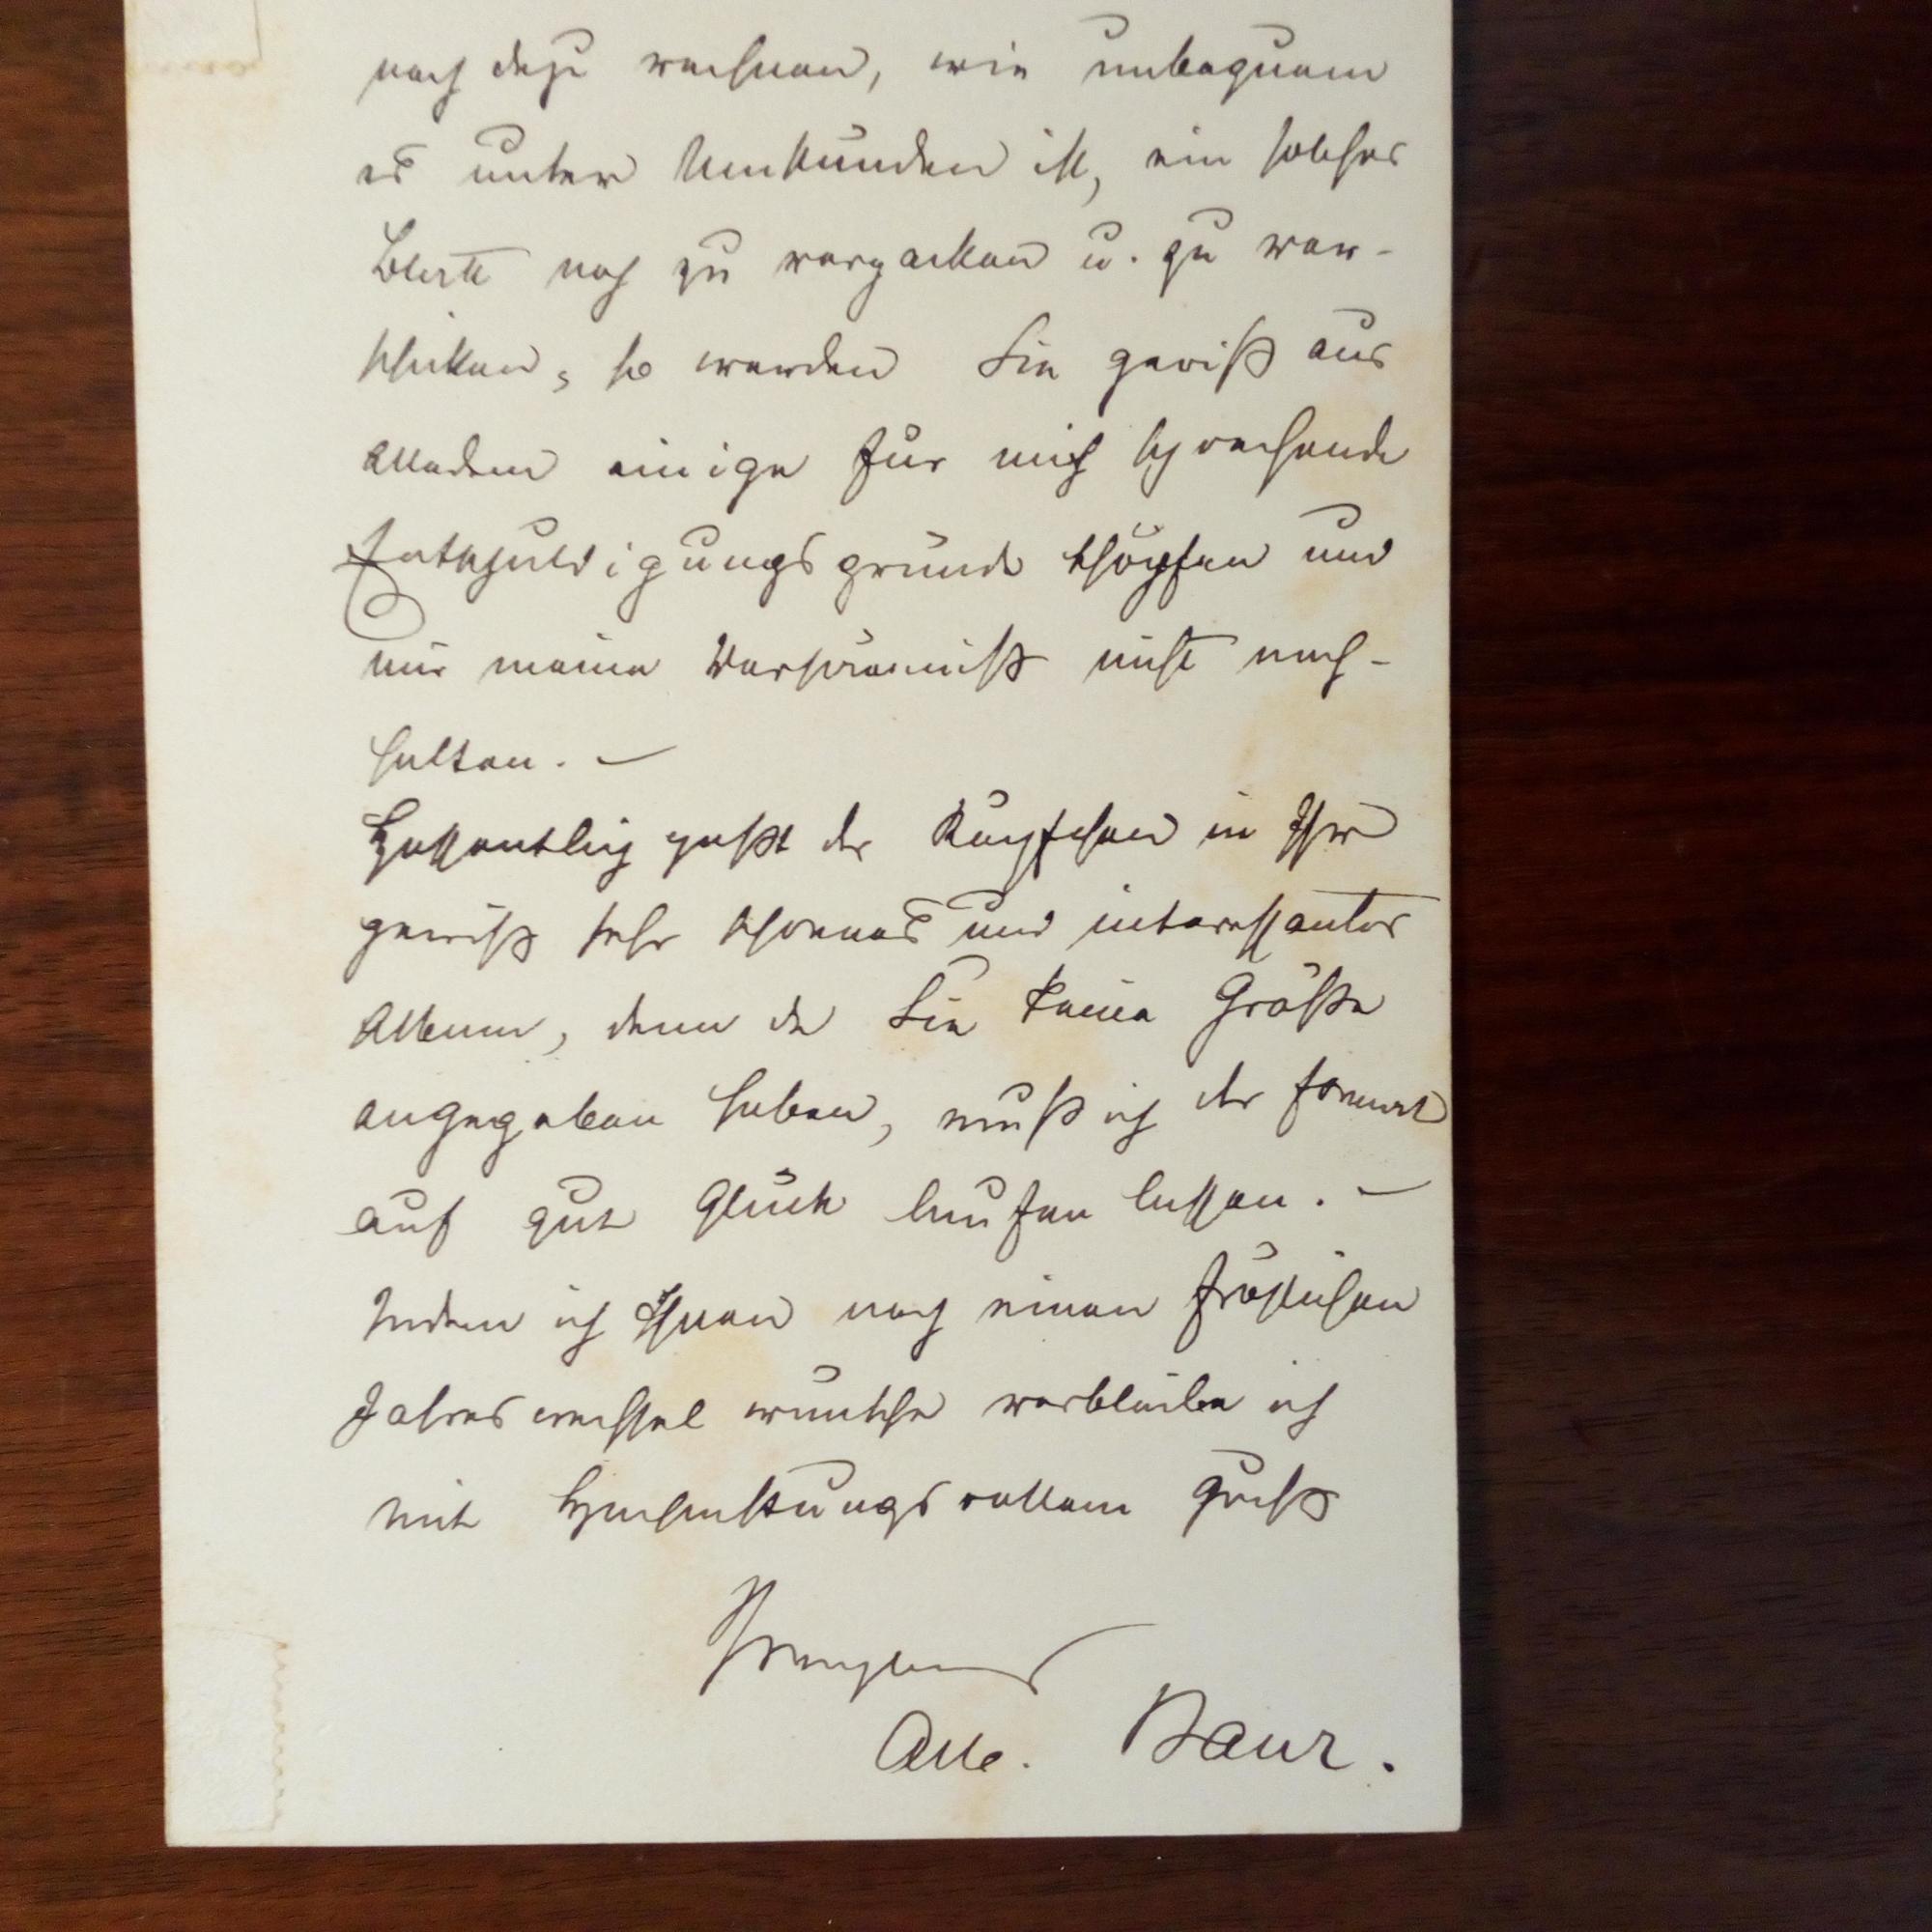 noch dazu rechnen, wie unbequem
es unter Umständen ist, ein solches
Blatt noch zu verpacken u. zu ver-
schicken, so werden Sie gewiß aus
alledem einige für mich sprechende
Entschuldigungsgründe schöpfen und
mir meine Versäumniß nicht nach-
halten. –
Hoffentlich paßt das Köpfchen in Ihr
gewiß sehr schönes und interessantes
Album, denn da Sie keine Größe
angegeben haben, muß ich das Format
auf gut Glück laufen lassen. –
Indem ich Ihnen noch einen fröhlichen
Jahreswechsel wünsche verbleibe ich
mit hochachtungsvollem Gruß
Ihr ergebener
Alb. Baur.